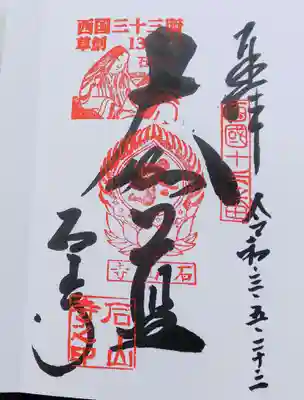 奉拝
西國十三番
令和・三・五・二十二
西国三十三所
草創 13
大伽藍
石山寺
石山寺之印